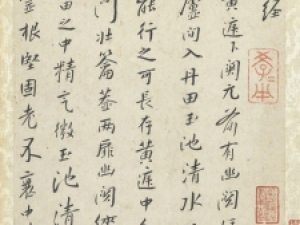 經
黃庭下関元前有幽闕
廬間入丹田玉池清水
能行之可長存黃庭中
門壯籥蓋兩扉幽闕俠
田之中精气微玉池清
根堅固老不衰中